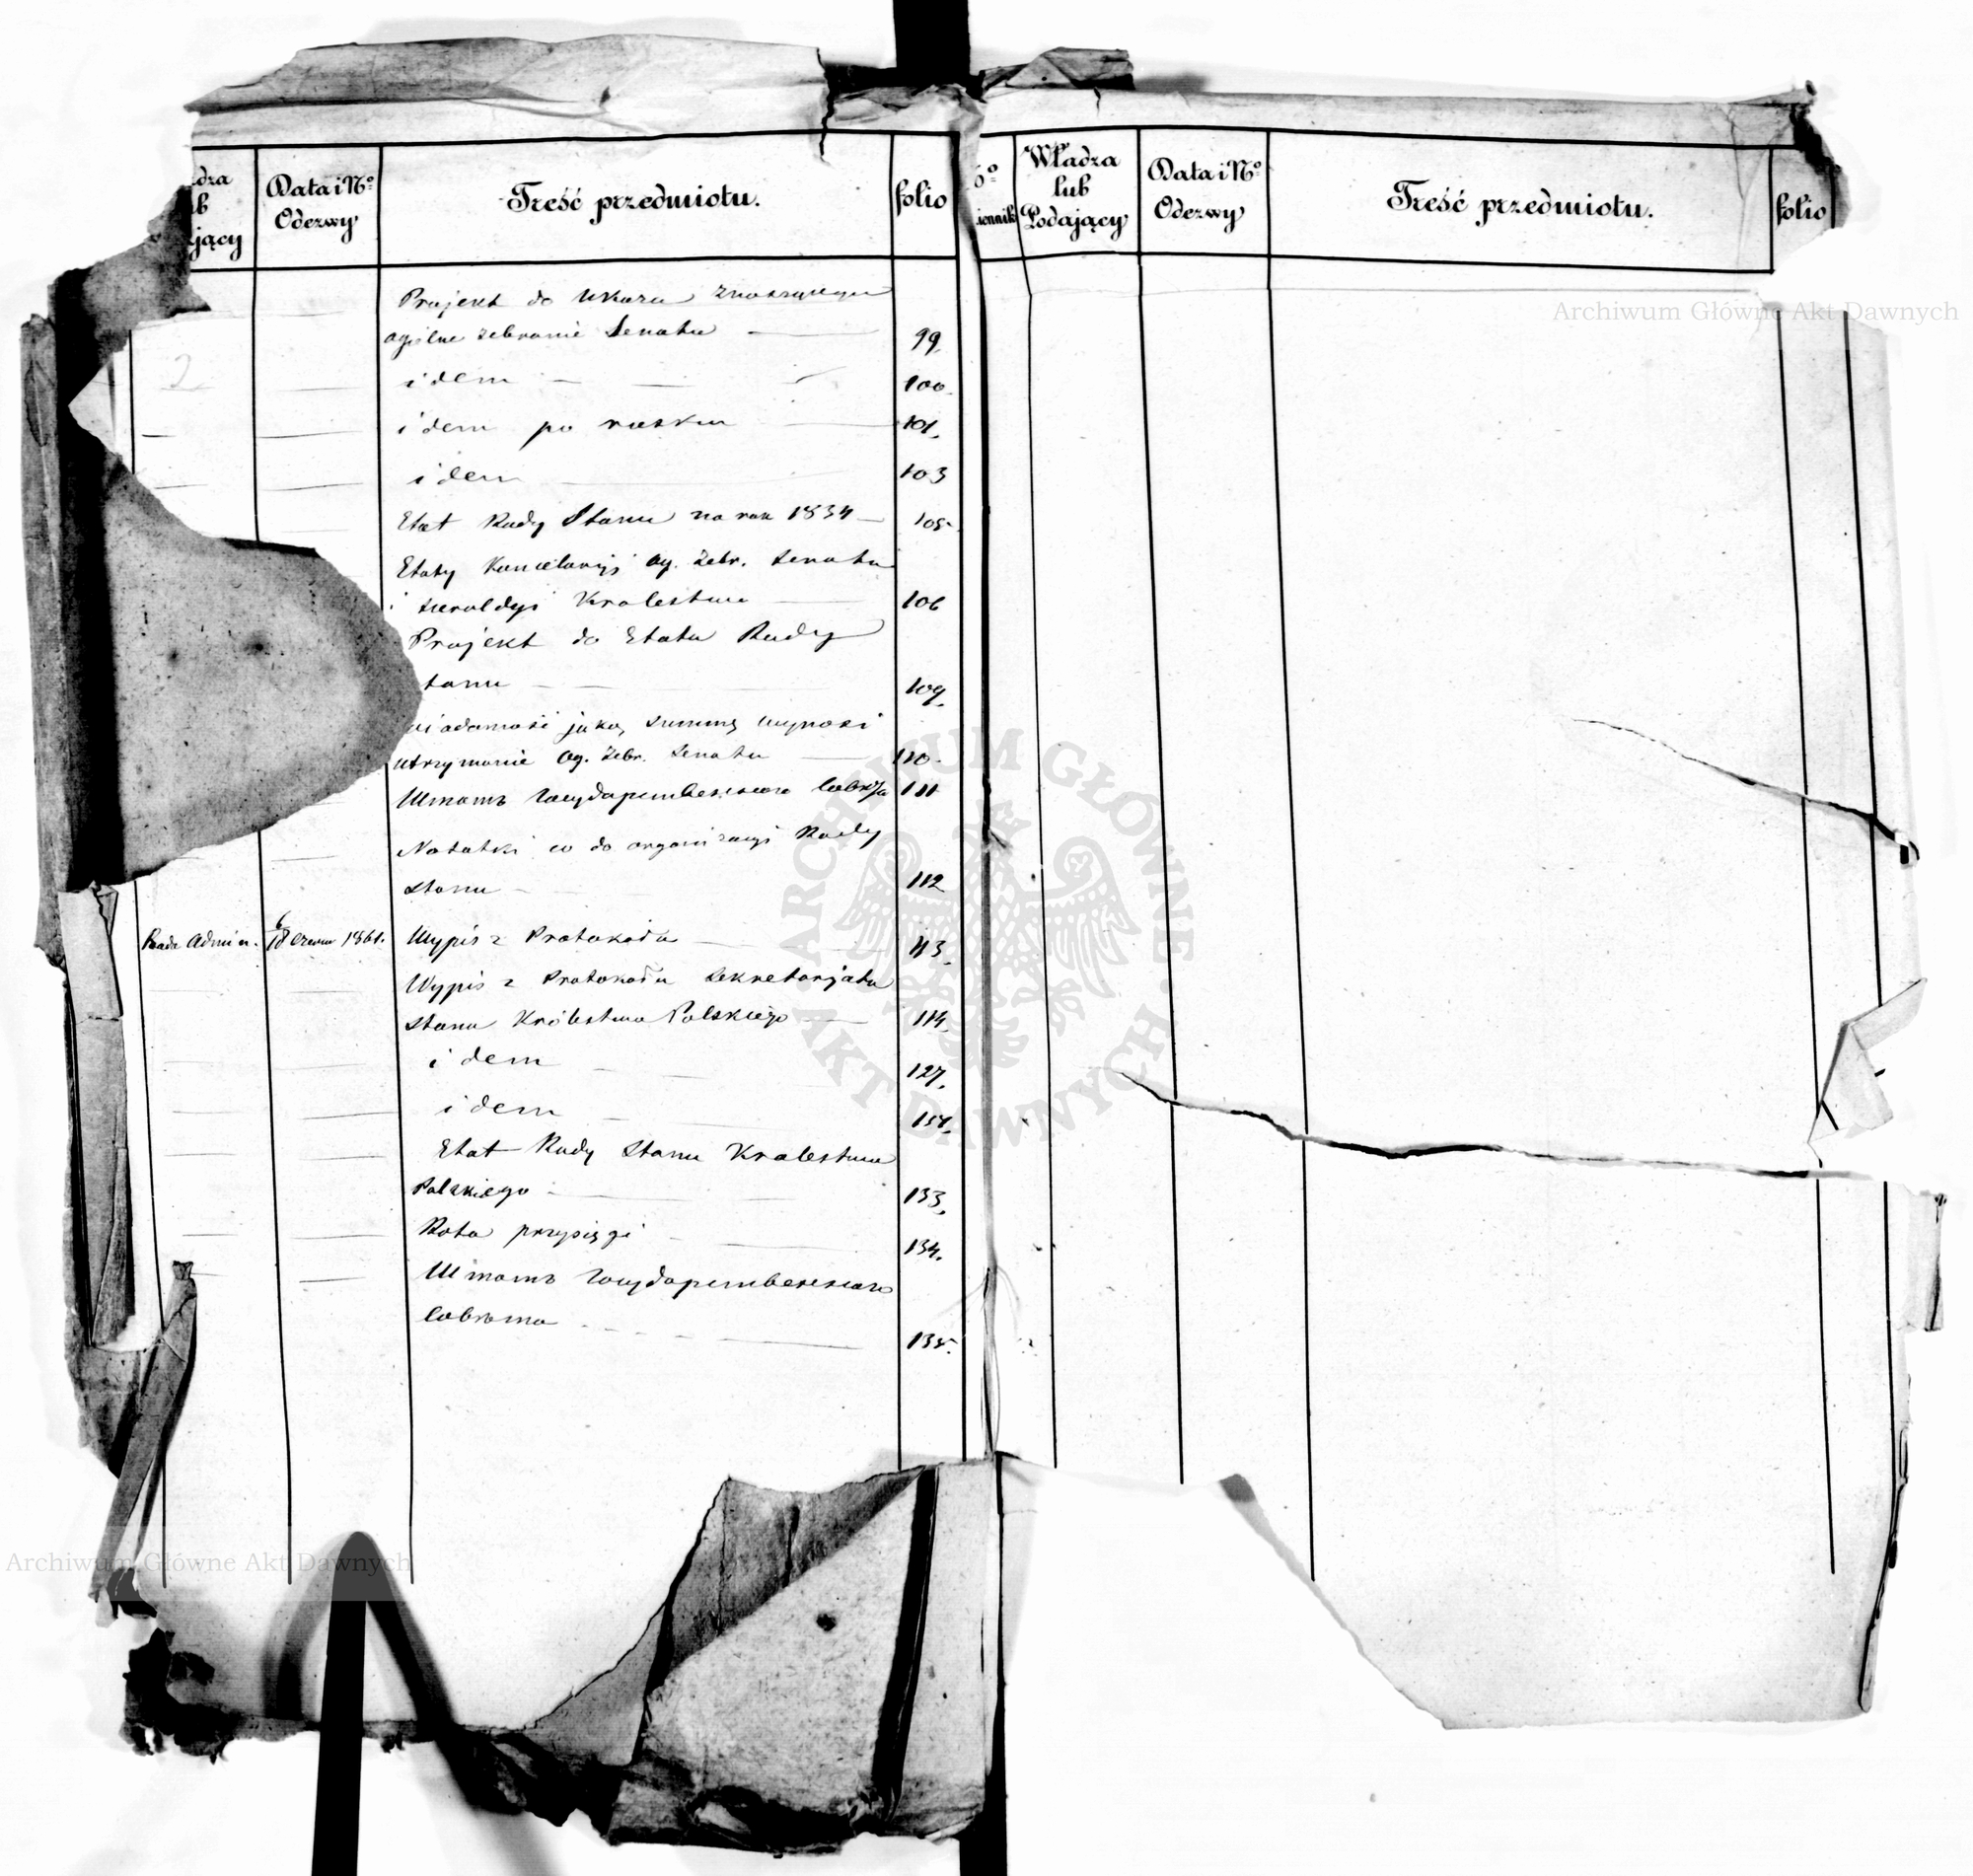 Data i Nº
Odezwy
Treść przedmiotu.
folio
Projekt do Ukazu znoszącego
ogólne zebranie Senatu 99.
idem 100.
idem po rusku 101.
idem 103
Etat Rady Stanu na rok 1834 105
Etaty Kancelaryi Og. Zebr. Senatu
i Heroldyi Krolestwa 106
Projekt do Etatu Rady
Stanu 109.
wiadomość jaką summę wynosi
utrzymanie Og. Zebr. Senatu 110.
Штатъ Государственнаго Совѣта 111
Notatki co do organizacyi Rady
Stanu 112
Rada Admin. 6/18 Czerw 1861. Wypis z Protokołu 113.
Wypis z Protokołu Sekretarjatu
Stanu Królestwa Polskiego 114.
idem 127.
idem
Etat Rady Stanu Krolestwa
Polskiego 133.
Rota przysięgi 134.
Штатъ Государственнаго
Совѣта 135.
Władza
lub
Podający
Data i Nº
Odezwy
Treść przedmiotu.
folio
Archiwum Główne Akt Dawnych
ARCHIWUM GŁÓWNE AKT DAWNYCH
Archiwum Główne Akt Dawnych